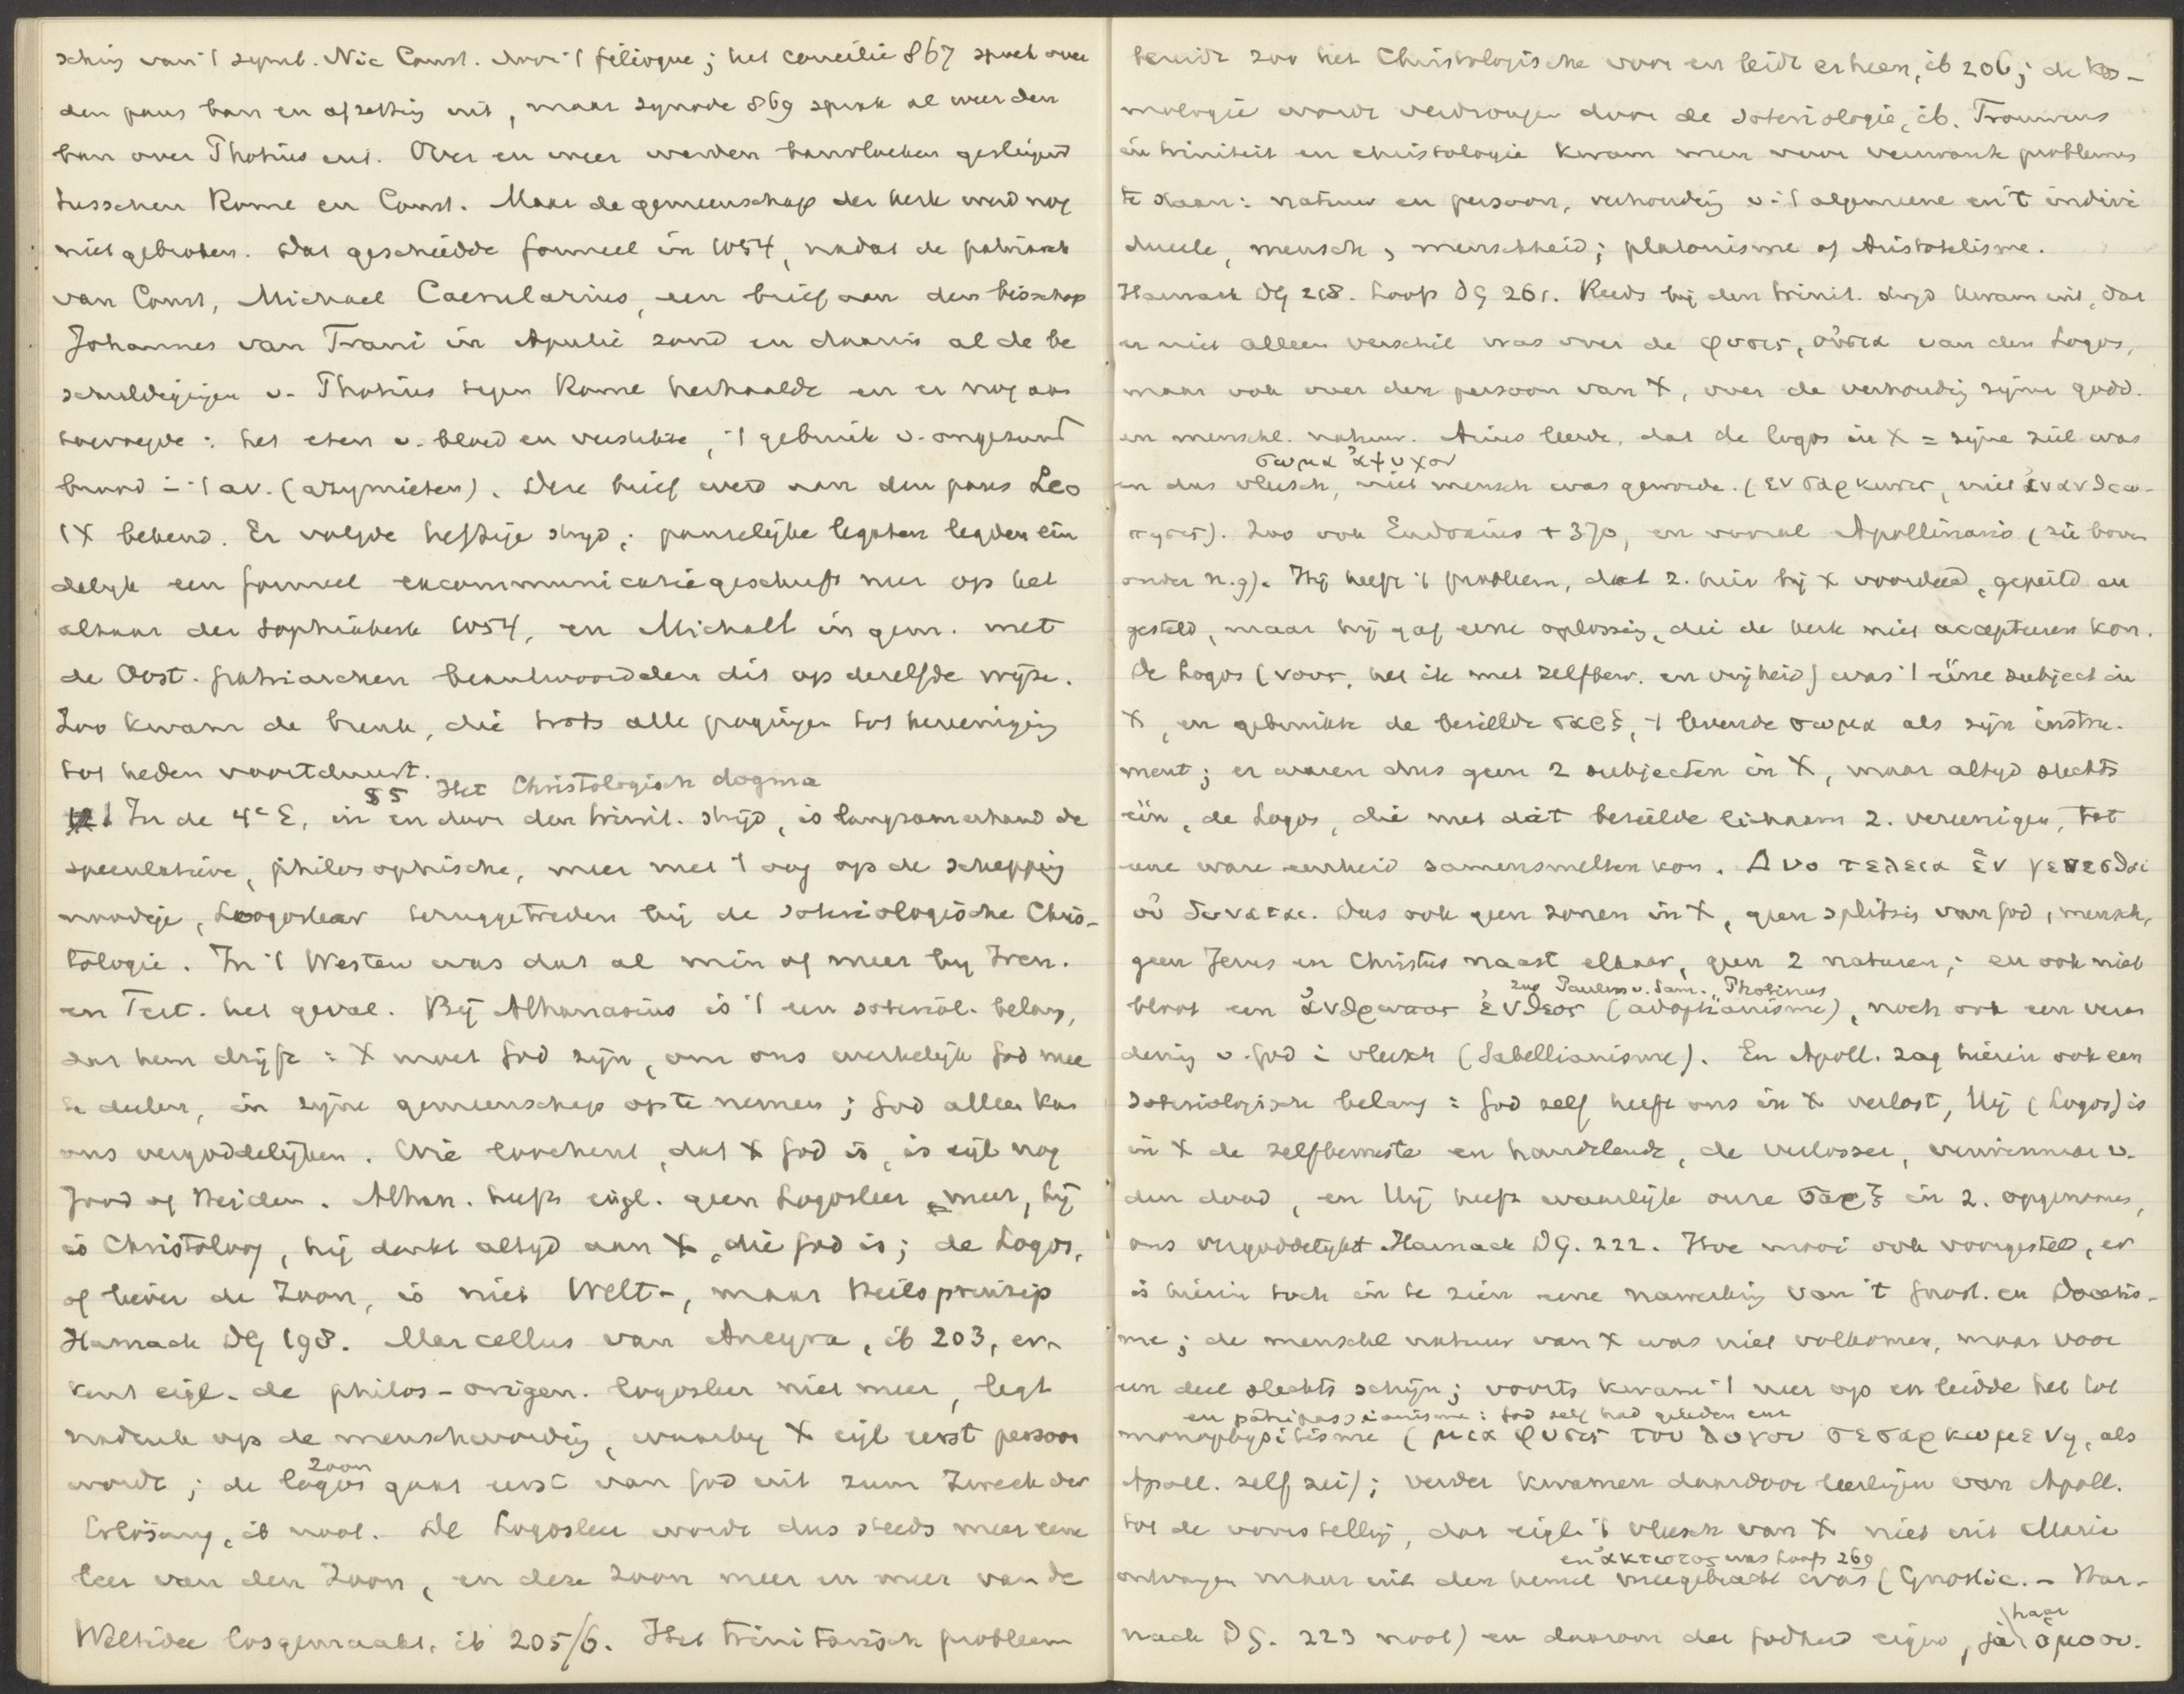 sching van 't symb. Nic Const. door 't filioque; het concilie 867 sprak over
den paus ban en afzetting uit, maar synode 869 sprak al weer den
ban over Photius uit. Over en weer werden banvloeken geslingerd
tusschen Rome en Const. Maar de gemeenschap der kerk werd nog
niet gebroken. Dat geschiedde formeel in 1054, nadat de patriarch
van Const, Michael Caerularius, een brief aan den bisschop
Johannes van Trani in Apulië zond en daarin al de be
schuldigingen v. Photius tegen Rome herhaalde en er nog aan
toevoegde: het eten v. bloed en verstikte, 't gebruik v. ongezuurd
brood i 't av. (azymieten). Deze brief werd aan den paus Leo
IX bekend. Er volgde heftige strijd; pauselijke legaten legden ein
delijk een formeel excommunicatiegeschrift neer op het
altaar der Sophiakerk 1054, en Michaël in gem. met
de Oost. patriarchen beantwoordden dit op dezelfde wijze.
Zoo kwam de breuk, die trots alle pogingen tot hereeniging
tot heden voortduurt.
§ 5 Het Christologisch dogma
1 In de 4e E, in en door den trinit. strijd, is langzamerhand de
speculatieve, philosophische, meer met 't oog op de schepping
noodige, Logosleer teruggetreden bij de soteriologische Chris-
tologie. In 't Westen was dat al min of meer by Iren.
en Tert. het geval. Bij Athanasius is 't een soteriol. belang,
dat hem drijft: X moet God zijn, om ons werkelijk God mee
te deelen, in zijne gemeenschap op te nemen; God alleen kan
ons vergoddelijken. Wie loochent, dat X God is, is eigl nog
Jood of Heiden. Athan. heeft eigl. geen Logosleer meer, hij
is Christoloog, hij denkt altijd aan X, die God is; de Logos,
of liever de Zoon, is niet Welt-, maar Heilsprinzip
Harnack DG 198. Marcellus van Ancyra, ib 203, er-
kent eigl. de philos-origen. logosleer niet meer, legt
nadruk op de menschwording, waarby X eigl eerst persoon
zoon
wordt; de logos gaat eerst van God uit zum Zweck der
Erlösung, ib noot. De Logosleer wordt dus steeds meer eene
leer van den Zoon, en deze zoon meer en meer van de
Weltidee losgemaakt, ib 205/6. Het trinitarisch probleem
bereidt zoo het Christologische voor en leidt er heen, ib 206; de kos-
mologie wordt verdrongen door de soteriologie, ib. Trouwens
in triniteit en christologie kwam men voor verwante problemen
te staan: natuur en persoon, verhouding v. 't algemeene en 't indivi
dueele, mensch, menschheid; platonisme of Aristotelisme.
Harnack DG 218. Loofs DG 261. Reeds bij den trinit. strijd kwam uit, dat
er niet alleen verschil was over de φυσις, οὐσια van den Logos,
maar ook over den persoon van X, over de verhouding zijner godd.
en menschl. natuur. Arius leerde, dat de logos in X = zijne ziel was
σωμα ἀψυχον
en dus vleesch, niet mensch was geworden. (ενσαρκωσις, niet ἐνανθρω-
πησις). Zoo ook Eudoxius † 370, en vooral Apollinaris (zie boven
onder n.9). Hij heeft 't probleem, dat z. hier bij X voordeed, gepeild en
gesteld, maar hij gaf eene oplossing, die de kerk niet accepteeren kon.
De Logos (νους, het ik met zelfbew. en vrijheid) was 't eene subject in
X, en gebruikte de bezielde σαρξ, 't levende σωμα als zijn instru-
ment; er waren dus geen 2 subjecten in X, maar altijd slechts
één, de Logos, die met dàt bezielde lichaam z. vereenigen, tot
eene ware eenheid samensmelten kon. Δυο τελεια ἑν γενεσθαι
οὐ δυναται. Dus ook geen zonen in X, geen splitsing van God, mensch,
geen Jezus en Christus naast elkaar, geen 2 naturen; en ook niet
zoo Paulus v. Sam. Photinus
bloot een ἀνθρωπος ἐνθεος (adoptianisme), noch ook een veran
dering v. God i vleesch (Sabellianisme). En Apoll. zag hierin ook een
soteriologisch belang: God zelf heeft ons in X verlost, Hij (Logos) is
in X de zelfbewuste en handelende, de verlosser, verwinnaar v.
den dood, en Hij heeft waarlijk onze σαρξ in z. opgenomen,
ons vergoddelijkt. Harnack DG. 222. Hoe mooi ook voorgesteld, er
is hierin toch in te zien eene nawerking van 't gnost. en Docetis-
me; de menschel natuur van X was niet volkomen, maar voor
een deel slechts schijn; voorts kwam 't neer op en leidde het tot
en patripassianisme: God zelf had geleden enz
monophysitisme (μια φυσις του λογου σεσαρκωμενη, als
Apoll. zelf zei); verder kwamen daardoor leerlingen van Apoll.
tot de voorstelling, dat eigl 't vleesch van X niet uit Maria
en ἀκτιστος was Loofs 269
ontvangen maar uit den hemel meegebracht was (Gnostic. - Har-
nack DG. 223 noot) en daarom der godheid eigen, ja haar ὁμοου.